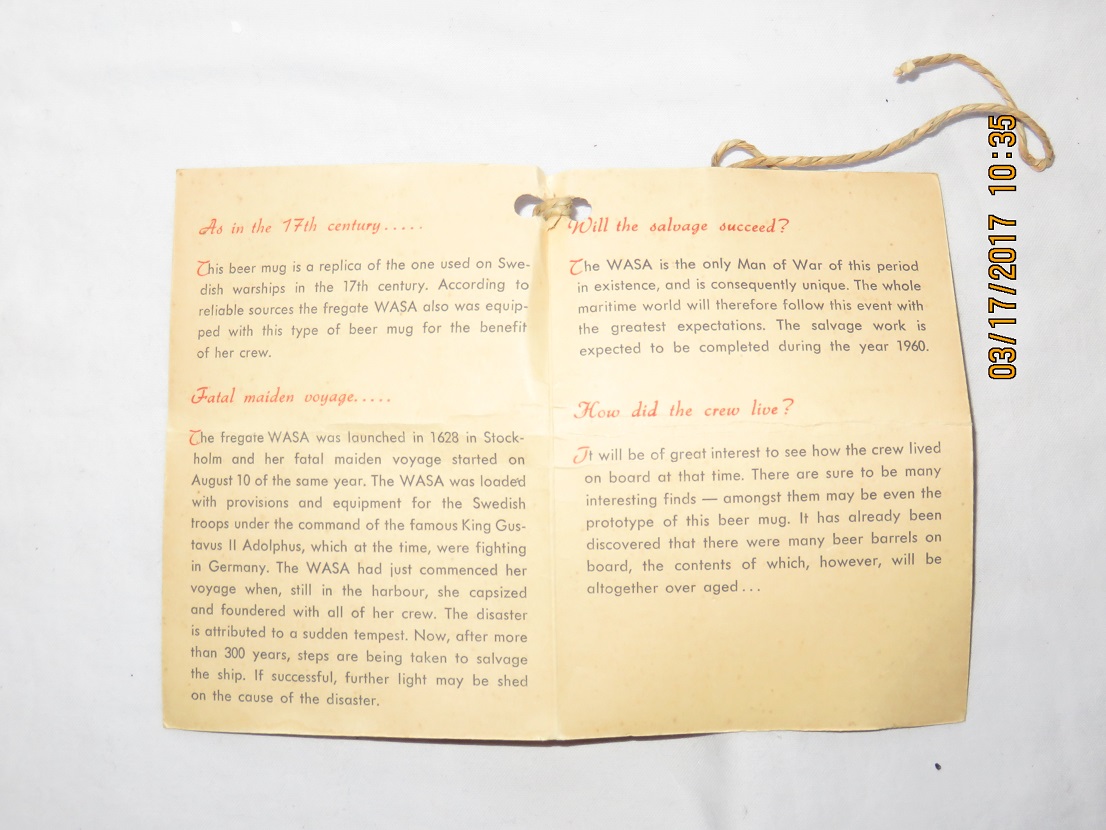 As in the 17th century.....
This beer mug is a replica of the one used on Swe-
dish warships in the 17th century. According to
reliable sources the fregate WASA also was equip-
ped with this type of beer mug for the benefit
of her crew.
Fatal maiden voyage.....
The fregate WASA was launched in 1628 in Stock-
holm and her fatal maiden voyage started on
August 10 of the same year. The WASA was loaded
with provisions and equipment for the Swedish
troops under the command of the famous King Gus-
tavus II Adolphus, which at the time, were fighting
in Germany. The WASA had just commenced her
voyage when, still in the harbour, she capsized
and foundered with all of her crew. The disaster
is attributed to a sudden tempest. Now, after more
than 300 years, steps are being taken to salvage
the ship. If successful, further light may be shed
on the cause of the disaster.
Will the salvage succeed?
The WASA is the only Man of War of this period
in existence, and is consequently unique. The whole
maritime world will therefore follow this event with
the greatest expectations. The salvage work is
expected to be completed during the year 1960.
How did the crew live?
It will be of great interest to see how the crew lived
on board at that time. There are sure to be many
interesting finds — amongst them may be even the
prototype of this beer mug. It has already been
discovered that there were many beer barrels on
board, the contents of which, however, will be
altogether over aged...
03/17/2017 10:35